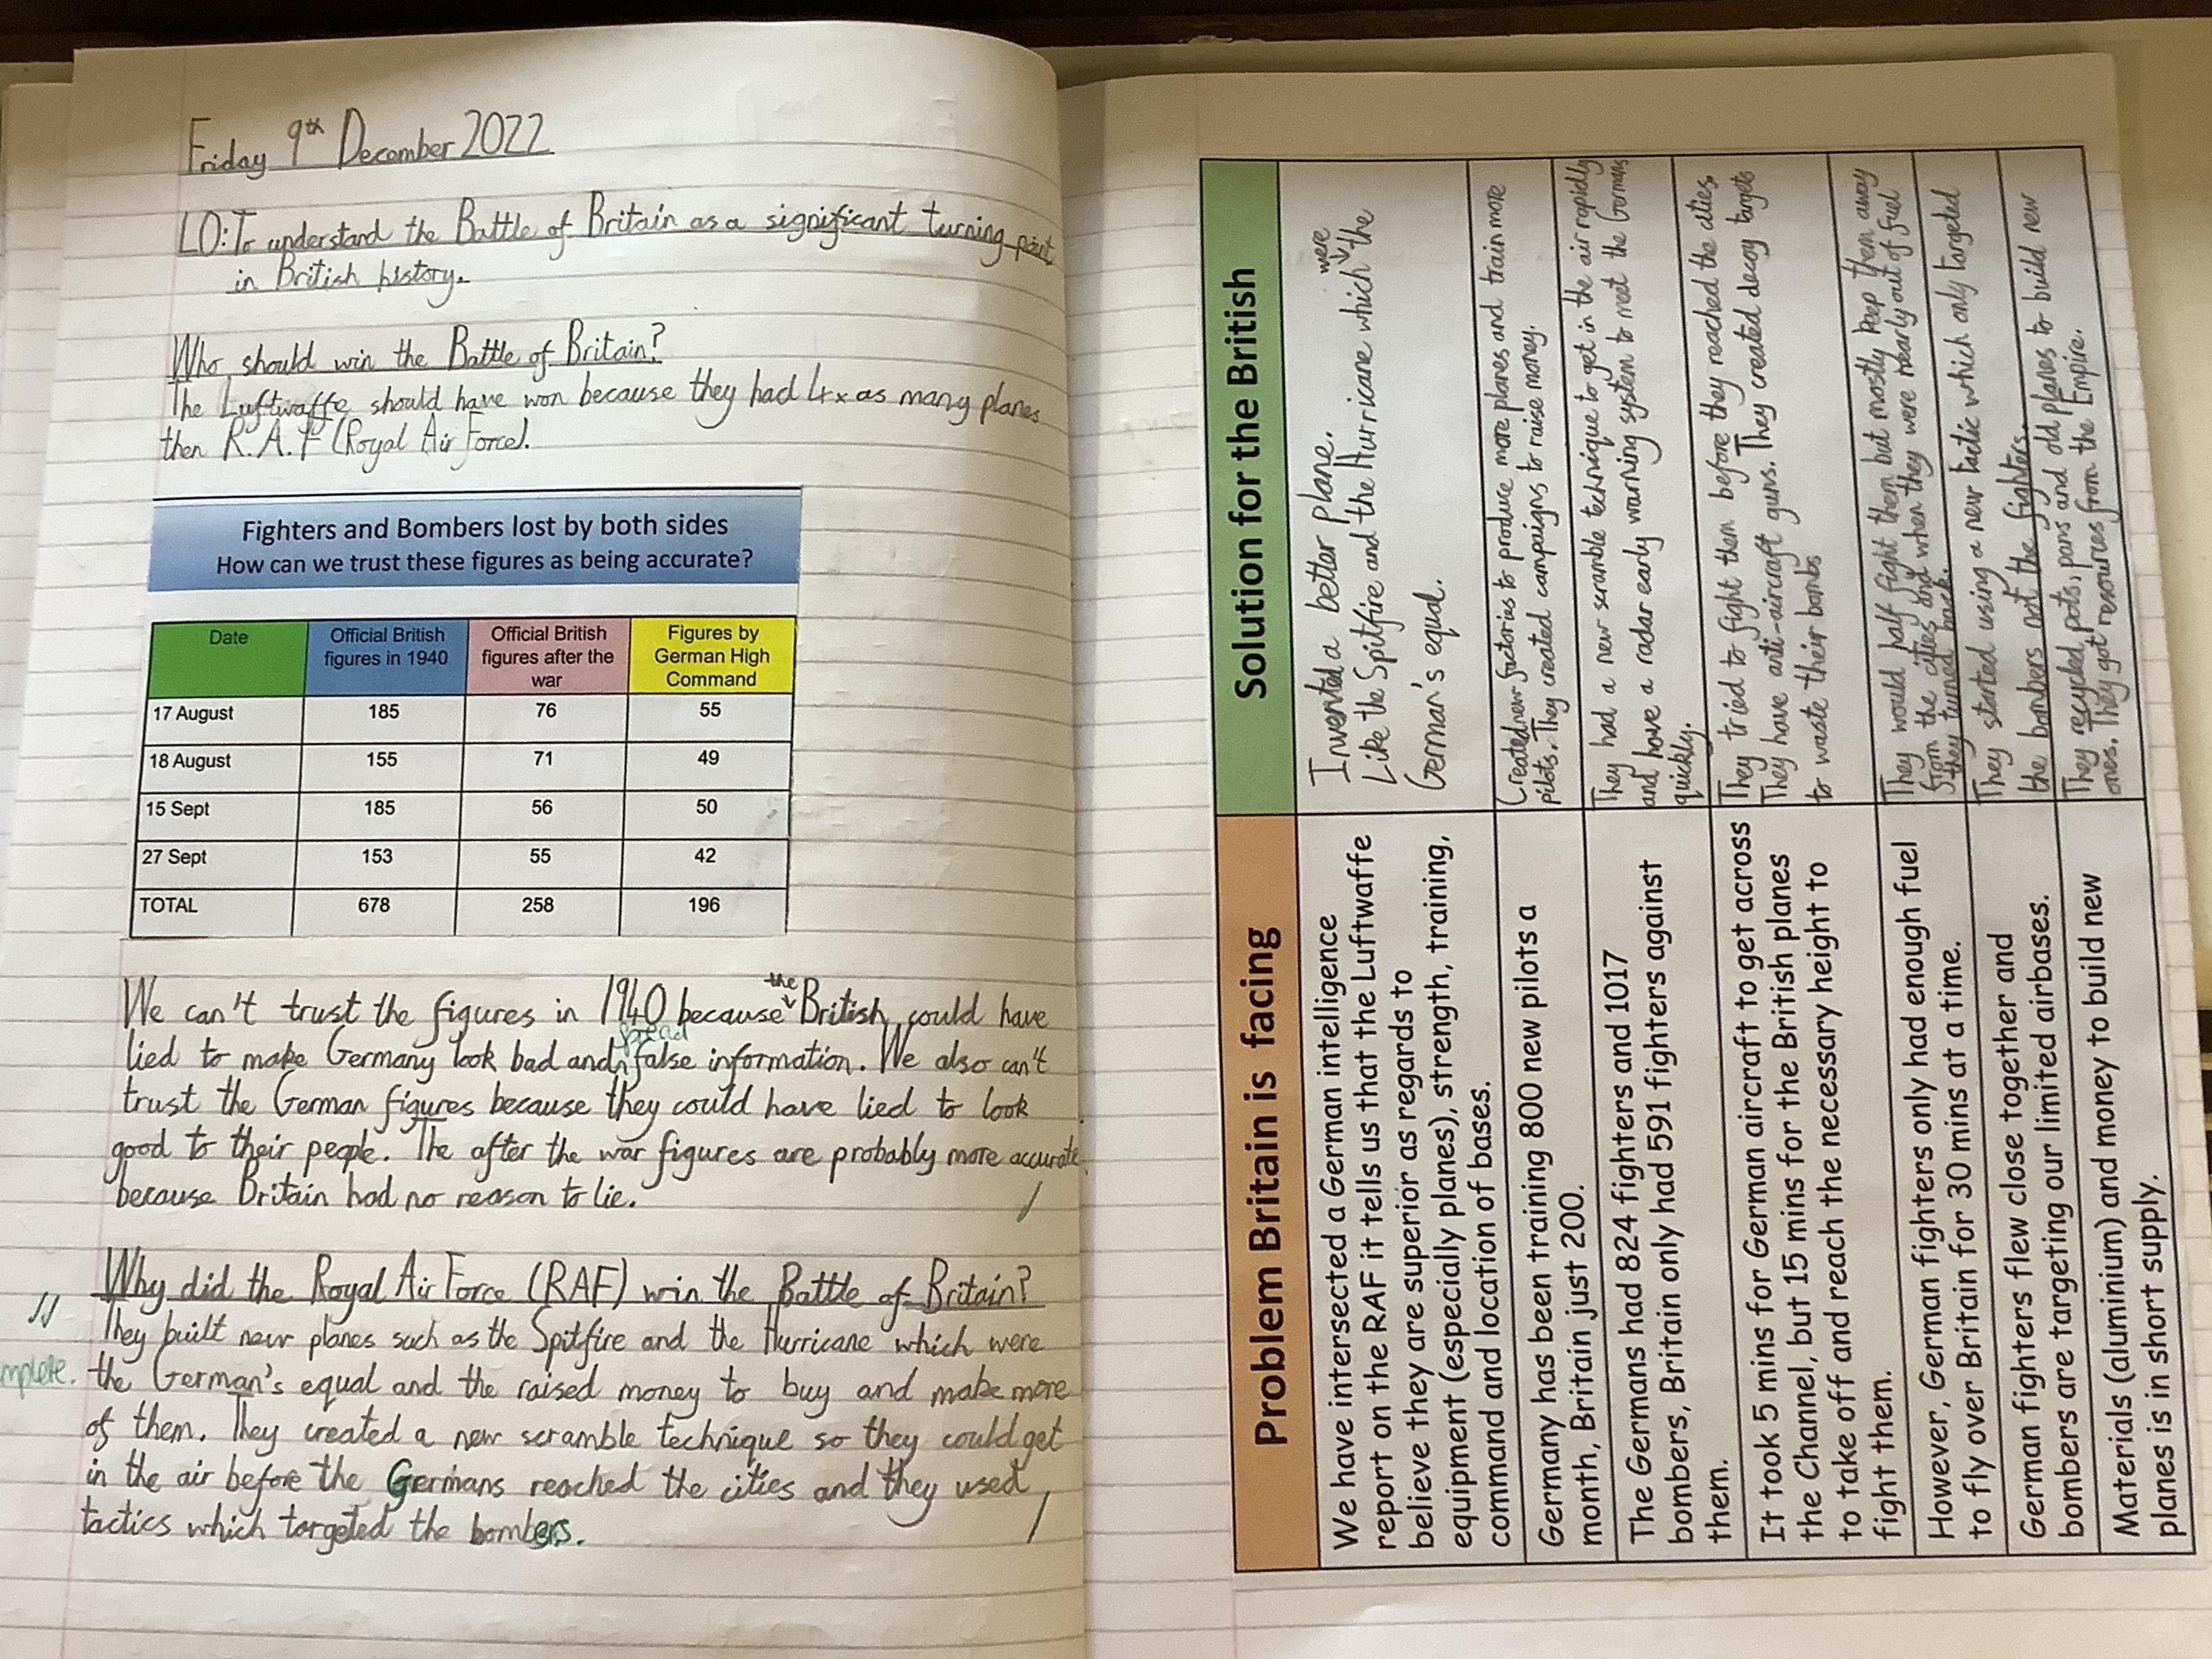 Friday 9th December 2022
LO: To understand the Battle of Britain as a significant turning point
in British history.
Who should win the Battle of Britain?
The Luftwaffe should have won because they had 4x as many planes
then R.A.F (Royal Air Force).
Fighters and Bombers lost by both sides
How can we trust these figures as being accurate?
Date | Official British figures in 1940 | Official British figures after the war | Figures by German High Command
17 August 185 76 55
18 August 155 71 49
15 Sept 185 56 50
27 Sept 153 55 42
TOTAL 678 258 196
We can't trust the figures in 1940 because the British could have
lied to make Germany look bad and spread false information. We also can't
trust the German figures because they could have lied to look
good to their people. The after the war figures are probably more accurate
because Britain had no reason to lie.
Why did the Royal Air Force (RAF) win the Battle of Britain?
They built new planes such as the Spitfire and the Hurricane which were
the German's equal and the raised money to buy and make more
of them. They created a new scramble technique so they could get
in the air before the Germans reached the cities and they used
tactics which targeted the bombers.
Problem Britain is facing
Solution for the British
We have intersected a German intelligence
report on the RAF it tells us that the Luftwaffe
believe they are superior as regards to
equipment (especially planes), strength, training,
command and location of bases.
Invented a better plane.
Like the Spitfire and the Hurricane which were the
German's equal.
Germany has been training 800 new pilots a
month, Britain just 200.
Created new factories to produce more planes and train more
pilots. They created campaigns to raise money.
The Germans had 824 fighters and 1017
bombers, Britain only had 591 fighters against
them.
They had a new scramble technique to get in the air rapidly
and have a radar early warning system to meet the Germans
quickly.
It took 5 mins for German aircraft to get across
the Channel, but 15 mins for the British planes
to take off and reach the necessary height to
fight them.
They tried to fight them before they reached the cities.
They have anti-aircraft guns. They created decoy targets
to waste their bombs
However, German fighters only had enough fuel
to fly over Britain for 30 mins at a time.
They would half fight them but mostly keep them away
from the cities and when they were nearly out of fuel
they turned back.
German fighters flew close together and
bombers are targeting our limited airbases.
They started using a new tactic which only targeted
the bombers not the fighters.
Materials (aluminium) and money to build new
planes is in short supply.
They recycled pots, pans and old planes to build new
ones. They got resources from the Empire.